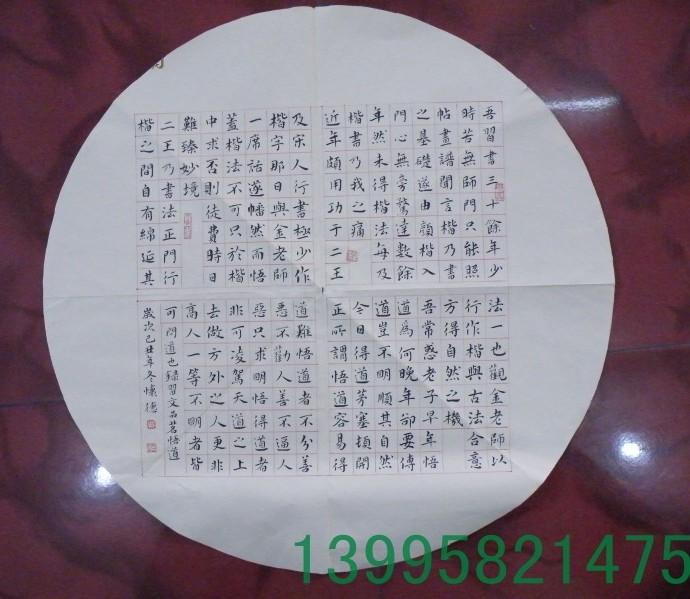 吾習書三十餘年少
時苦無師門只能照
帖畫譜聞言楷乃書
之基礎遂由顏楷入
門心無旁騖達數餘
年然未得楷法每及
楷書乃我之痛
近年頗用功于二王
及宋人行書極少作
楷字那日與金老師
一席話遂幡然而悟
蓋楷法不可只於楷
中求否則徒費時日
難臻妙境
二王乃書法正門行
楷之間自有綿延其
法一也觀金老師以
行作楷與古法合意
方得自然之機
吾常惑老子早年悟
道為何晚年卻要傳
道豈不明順其自然
今日得道茅塞頓開
正所謂悟道容易得
道難悟道者不分善
惡不勸人善不逼人
惡只求明悟得道者
非可凌駕天道之上
去做方外之人更非
高人一等不明者皆
可問道也錄習文品茗悟道
歲次己丑年冬懷德
13995821475